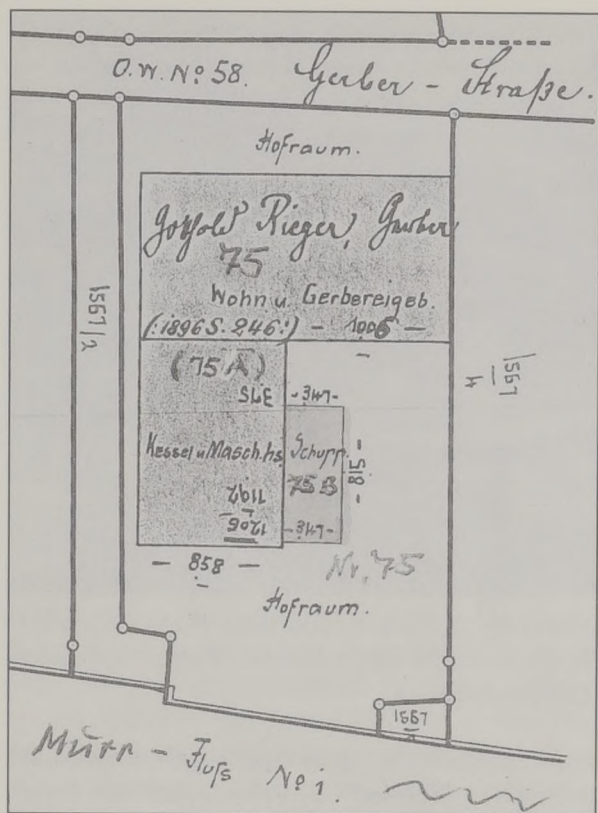 O.W. Nº 58. Gerber - Straße.
Hofraum.
Gotthold Rieger, Gerber
75
Wohn u. Gerbereigeb.
(:1896 S. 246:) - 1006 -
1567/2
1567
4
(75 A)
375
- 347 -
Kessel u. Masch.hs.
Schupp.
75 B
- 815 -
1192
1206
- 347 -
- 858 -
Nr. 75
Hofraum.
1567
Murr - Fluſs Nº 1.